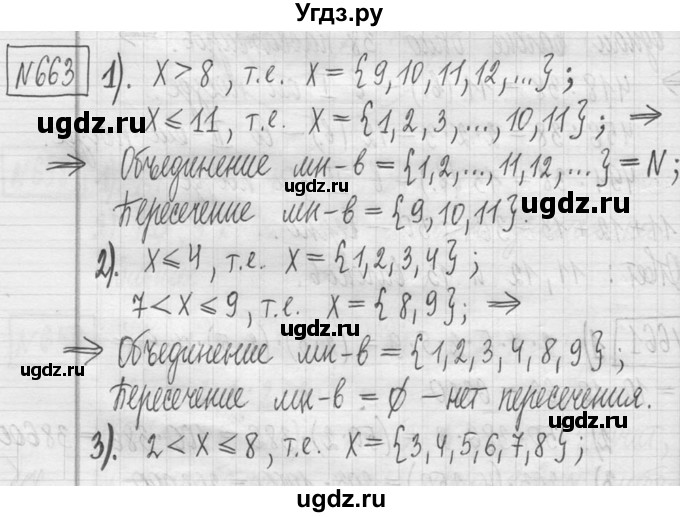 Угдз.ру
№663 1). X > 8, т.е. X = {9, 10, 11, 12, ...};
X ⩽ 11, т.е. X = {1, 2, 3, ..., 10, 11}; ⇒
⇒ Объединение мн-в = {1, 2, ..., 11, 12, ...} = N;
Пересечение мн-в = {9, 10, 11}
2). X ⩽ 4, т.е. X = {1, 2, 3, 4};
7 < X ⩽ 9, т.е. X = {8, 9}; ⇒
⇒ Объединение мн-в = {1, 2, 3, 4, 8, 9};
Пересечение мн-в = ∅ – нет пересечения.
3). 2 < X ⩽ 8, т.е. X = {3, 4, 5, 6, 7, 8};
ugdz.ru
ugdz.ru
ugdz.ru
ugdz.ru
ugdz.ru
ugdz.ru
ugdz.ru
ugdz.ru
ugdz.ru